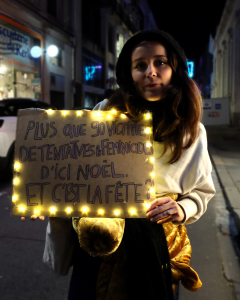 PLUS QUE 90 VICTIMES
DE TENTATIVES de FÉMINICIDES
D'ICI NOËL.
ET C'EST LA FÊTE!